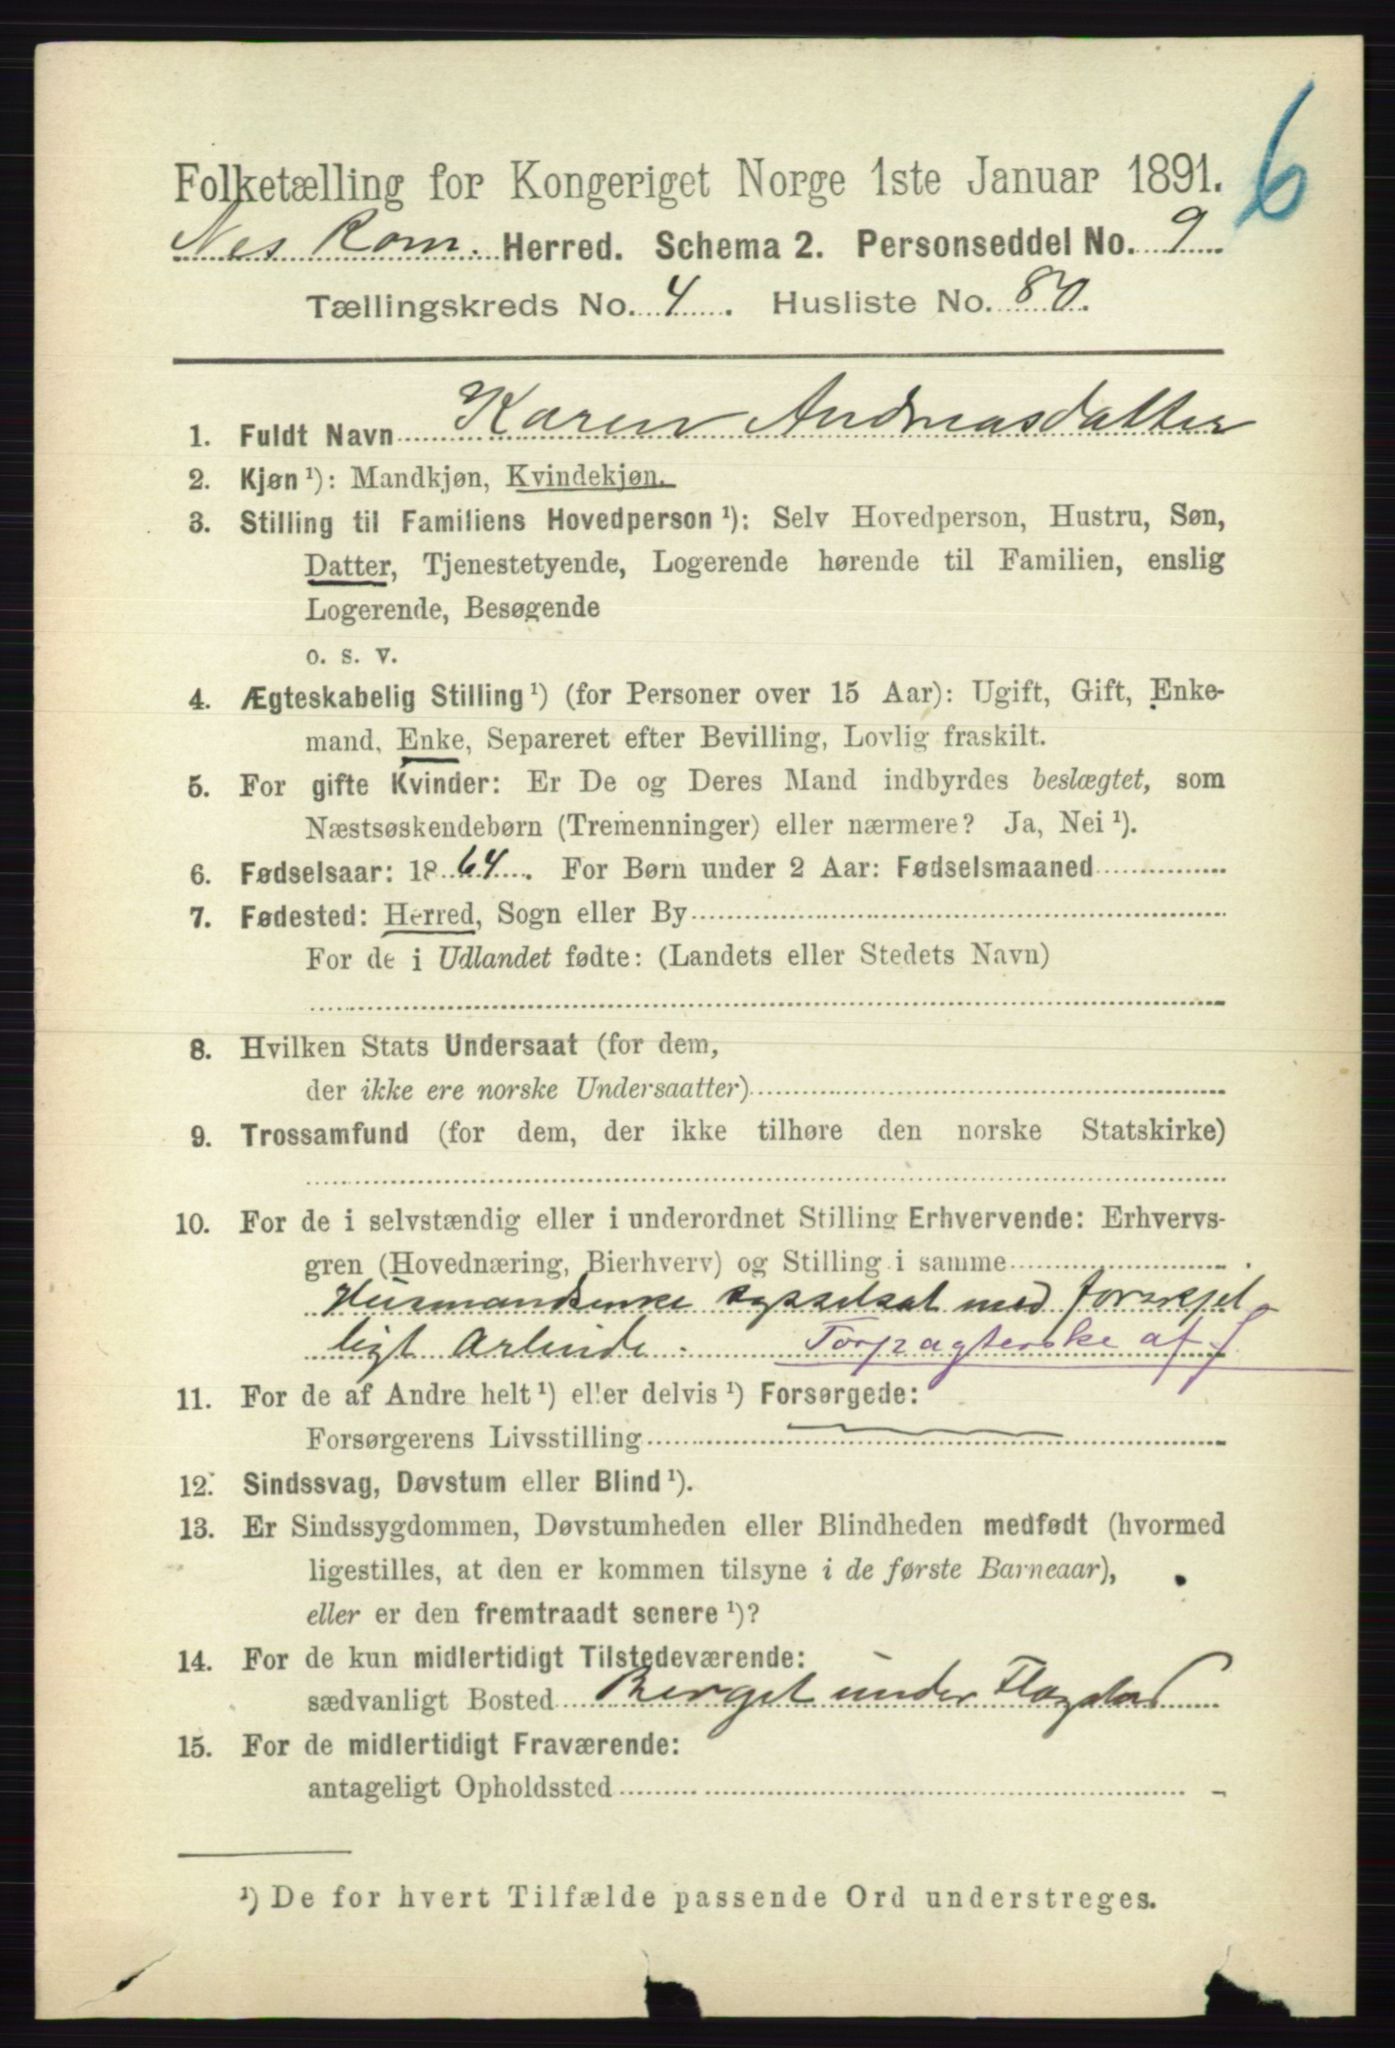 6
Folketælling for Kongeriget Norge 1ste Januar 1891.
Nes Rom. Herred. Schema 2. Personseddel No. 9
Tællingskreds No. 4. Husliste No. 80.
1. Fuldt Navn Karen Andreasdatter
2. Kjøn ¹): Mandkjøn, Kvindekjøn.
3. Stilling til Familiens Hovedperson ¹): Selv Hovedperson, Hustru, Søn,
Datter, Tjenestetyende, Logerende hørende til Familien, enslig
Logerende, Besøgende
o. s. v.
4. Ægteskabelig Stilling ¹) (for Personer over 15 Aar): Ugift, Gift, Enke-
mand, Enke, Separeret efter Bevilling, Lovlig fraskilt.
5. For gifte Kvinder: Er De og Deres Mand indbyrdes beslægtet, som
Næstsøskendebørn (Tremenninger) eller nærmere? Ja, Nei ¹).
6. Fødselsaar: 1864. For Børn under 2 Aar: Fødselsmaaned
7. Fødested: Herred, Sogn eller By
For de i Udlandet fødte: (Landets eller Stedets Navn)
8. Hvilken Stats Undersaat (for dem,
der ikke ere norske Undersaatter)
9. Trossamfund (for dem, der ikke tilhøre den norske Statskirke)
10. For de i selvstændig eller i underordnet Stilling Erhvervende: Erhvervs-
gren (Hovednæring, Bierhverv) og Stilling i samme
Husmandsenke sysselsat med forskjel
ligt Arbeide. Forpagterske af J
11. For de af Andre helt ¹) eller delvis ¹) Forsørgede:
Forsørgerens Livsstilling
12. Sindssvag, Døvstum eller Blind ¹).
13. Er Sindssygdommen, Døvstumheden eller Blindheden medfødt (hvormed
ligestilles, at den er kommen tilsyne i de første Barneaar),
eller er den fremtraadt senere ¹)?
14. For de kun midlertidigt Tilstedeværende:
sædvanligt Bosted Berget under
15. For de midlertidigt Fraværende:
antageligt Opholdssted
¹) De for hvert Tilfælde passende Ord understreges.